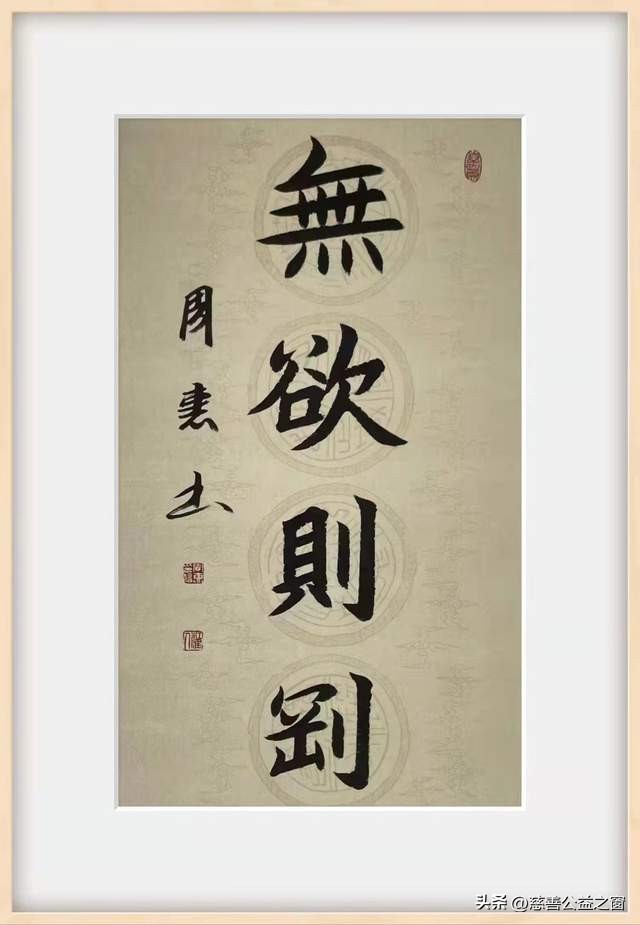 無欲則剛
周书
头条 @慈善公益之窗